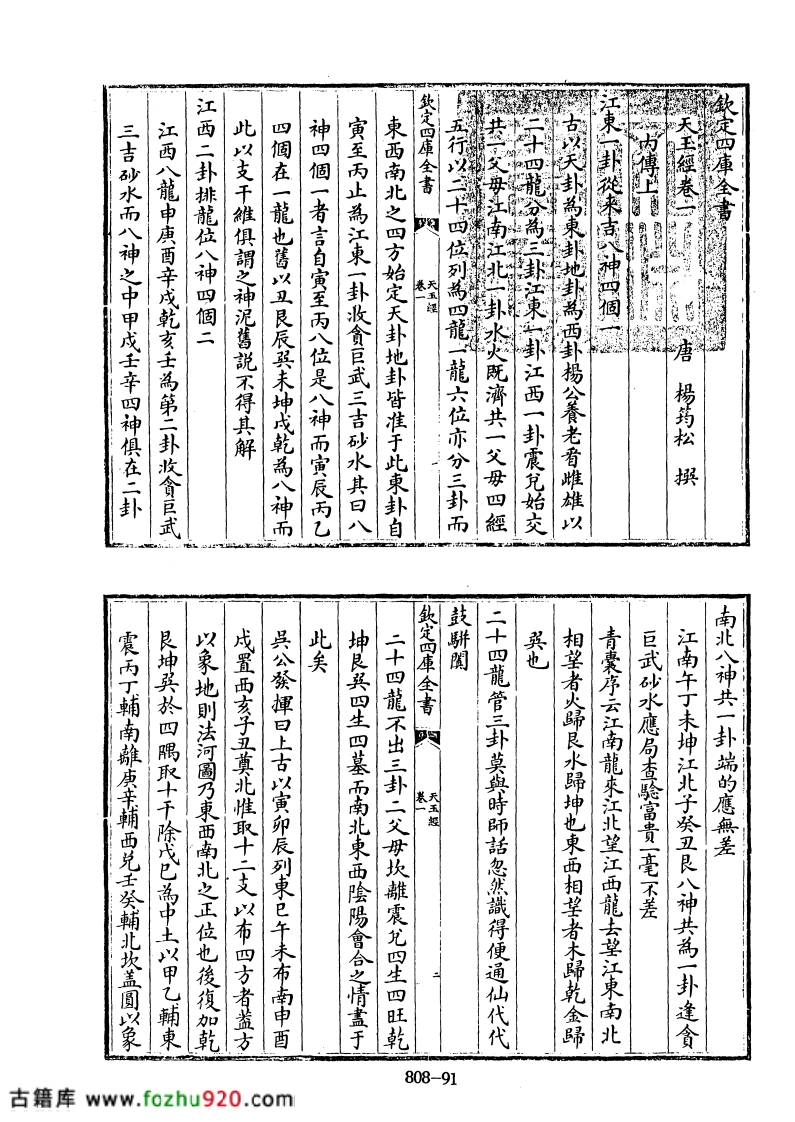 欽定四庫全書
天玉經卷一
唐 楊筠松 撰
內傳上
江東一卦從來吉八神四個一
古以天卦為東卦地卦為西卦楊公養老看雌雄以
二十四龍分為三卦江東一卦江西一卦震兌始交
共一父母江南江北一卦水火既濟共一父母四經
五行以二十四位列為四龍一龍六位亦分三卦而
欽定四庫全書
天玉經
卷一
一
東西南北之四方始定天卦地卦皆准于此東卦自
寅至丙止為江東一卦收貪巨武三吉砂水其曰八
神四個一者言自寅至丙八位是八神而寅辰丙乙
四個在一龍也舊以丑艮辰巽未坤戌乾為八神而
此以支干維俱謂之神泥舊說不得其解
江西二卦排龍位八神四個二
江西八龍申庚酉辛戌乾亥壬為第二卦收貪巨武
三吉砂水而八神之中甲戌壬辛四神俱在二卦
南北八神共一卦端的應無差
江南午丁未坤江北子癸丑艮八神共為一卦逢貪
巨武砂水應局查驗富貴一毫不差
青囊序云江南龍來江北望江西龍去望江東南北
相望者火歸艮水歸坤也東西相望者木歸乾金歸
巽也
二十四龍管三卦莫與時師話忽然識得便通仙代代
鼓駢闐
欽定四庫全書
天玉經
卷一
二
二十四龍不出三卦二父母坎離震兌四生四旺乾
坤艮巽四生四墓而南北東西陰陽會合之情盡于
此矣
吳公發揮曰上古以寅卯辰列東巳午未布南申酉
戌置西亥子丑奠北惟取十二支以布四方者葢方
以象地則法河圖乃東西南北之正位也後復加乾
艮坤巽於四隅取十干除戊己為中土以甲乙輔東
震丙丁輔南離庚辛輔西兌壬癸輔北坎盖圓以象
808-91
古籍库 www.fozhu920.com